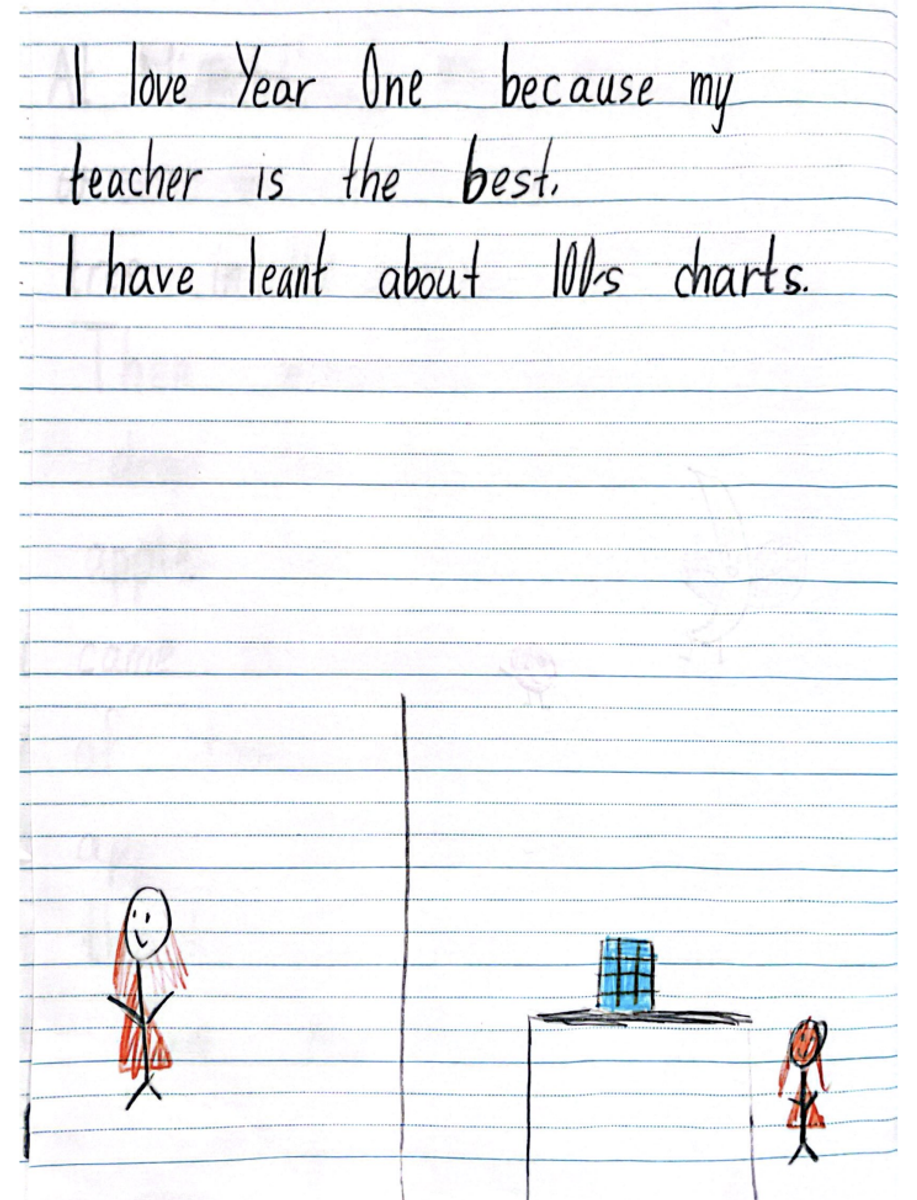 I love Year One because my
teacher is the best.
I have leant about 100s charts.